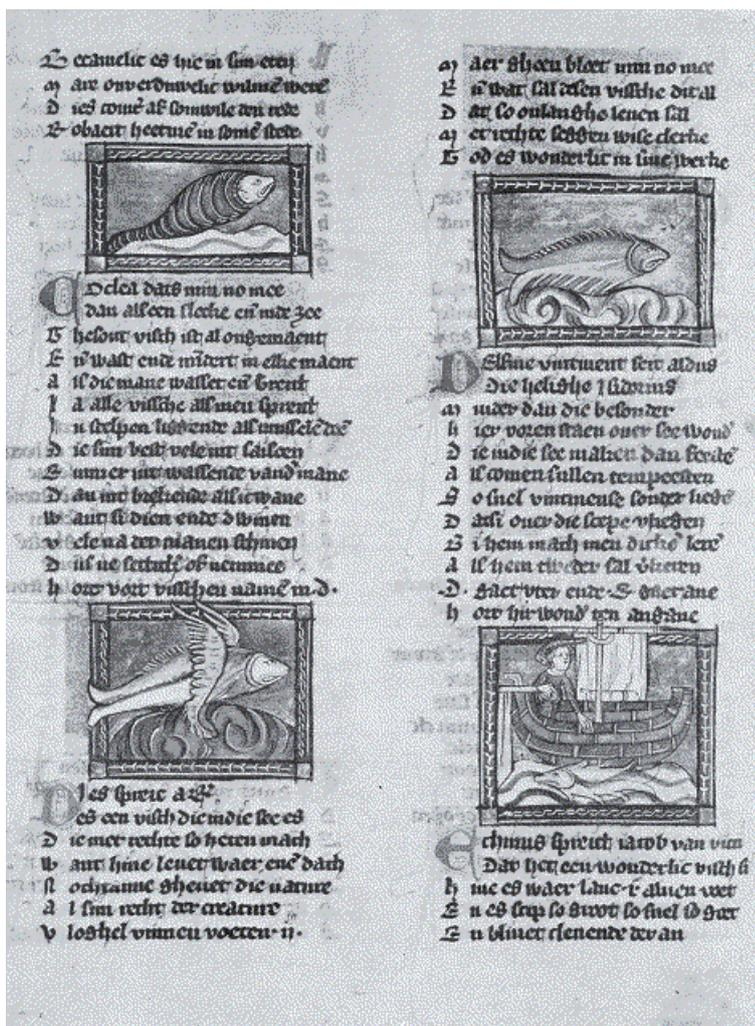 are onverduwelic
D ies
E obaert heetme in some stede
O clea dats min no mee
dan alleen slecke en in de zee
G hesont visch ist al ongemaect
E n wast ende mindert in elke maent
A ls die mane wasset en brent
I a alle vissche als men sprent
D ie sijn best vele int saisoen
E mmer int wassende vand mane
D an int brekende als ict wane
W ant si dien ende dwinen
v ele na der manen schinen
D us ne scriuic of nemmee
h ort vort visschen name in .d.
D ies spreit
es een visch die in die see es
D ie met rechte so heten mach
W ant hine leuet maer ene dach
N ochtanne gheuet die nature
A l sijn recht der creature
V loghel vinnen voeten .ij.
M aer gheen bloet min no mee
E n wat sal desen vissche dit al
D at so onlanghe leuen sal
M et rechte segghen wise clerke
G od es wonderlic in sine werke
D Elfine vintment seit aldus
Die helighe ysidorus
M inder dan die besonder
h ier voren staen ouer see wond
D ie in die see maken dan feeste
A ls comen sullen tempeesten
S o snel vintmense sonder lieghe
D atsi ouer die scepe vlieghen
B i hem mach men dicke lere
A ls hem tweder sal
.D. gaet vter ende .E. gaet ane
h ort hir wond ten angane
E chinus spreict iacob van
Dat het een wonderlic visch si
h ine es maer lanc .i. aluen voet
E n es scip so groot so snel so goet
E n bliuet clenende der an